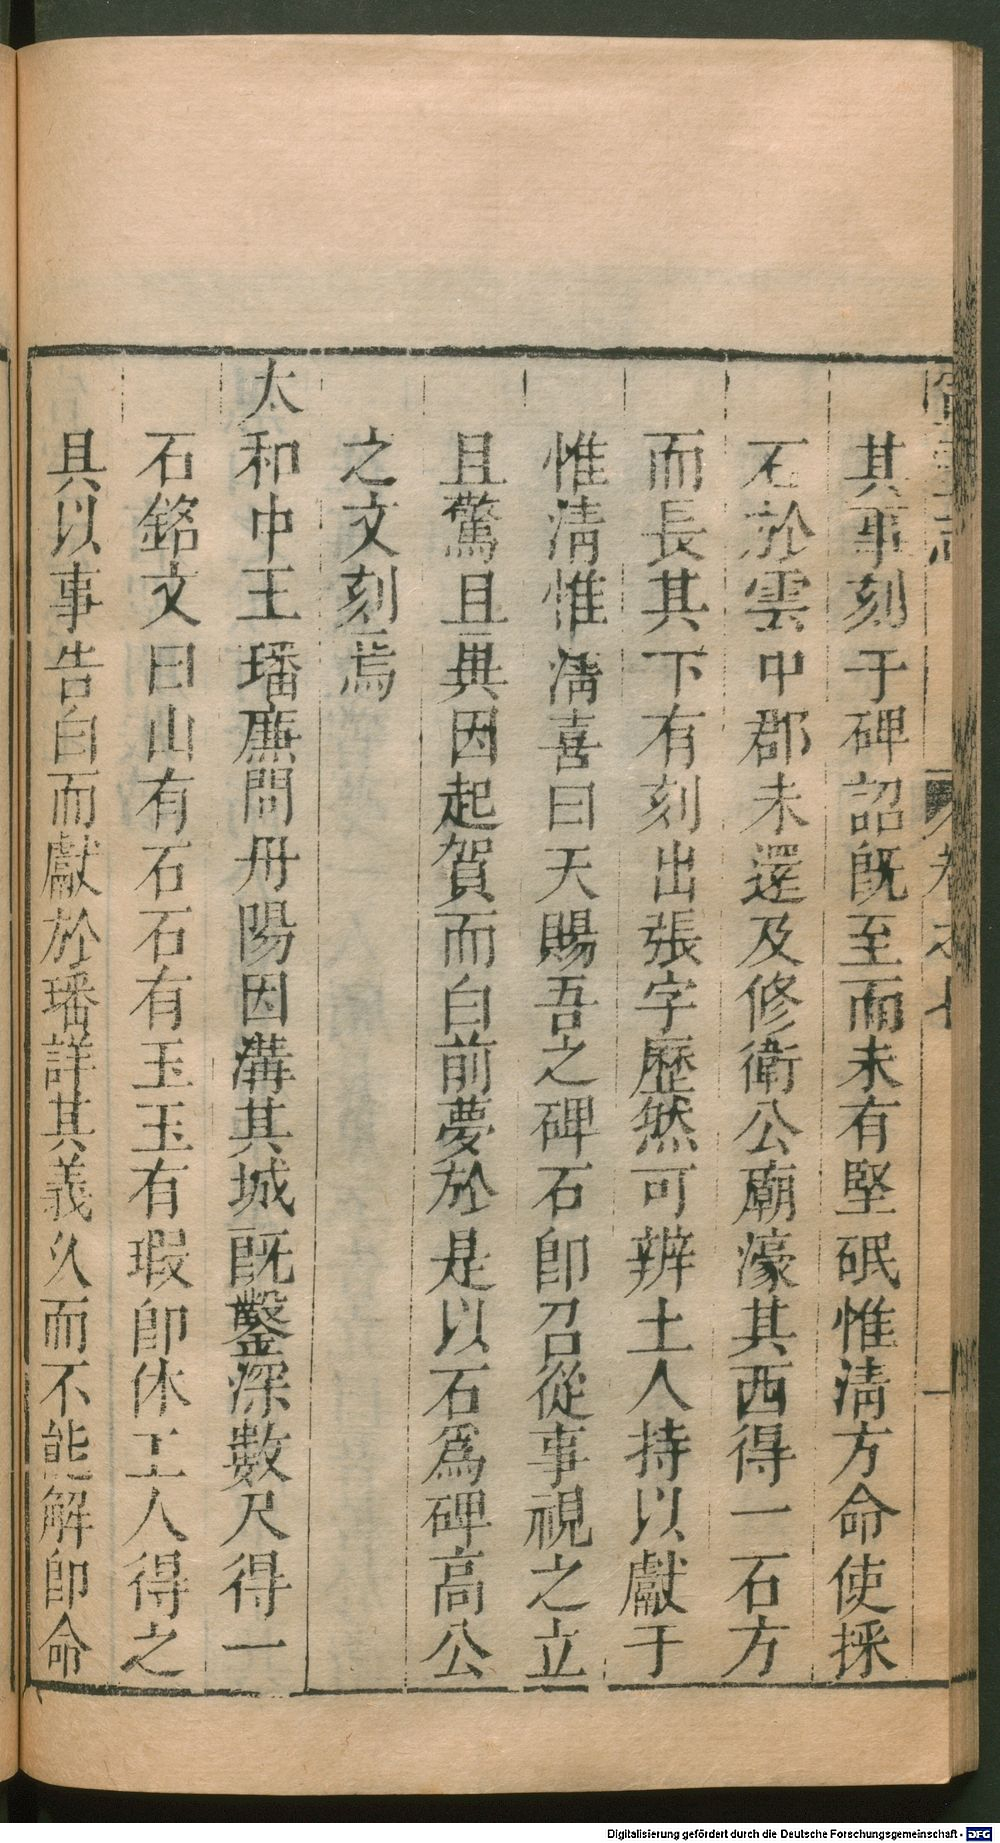 其事刻于碑詔既至而未有堅珉惟清方命使採
石於雲中郡未還及修衛公廟濠其西得一石方
而長其下有刻出張字歷然可辨土人持以獻于
惟清惟清喜曰天賜吾之碑石即召從事視之立
且驚且異因起賀而白前夢於是以石爲碑高公
之文刻焉
太和中王璠廉問丹陽因溝其城既鑿深數尺得一
石銘文曰山有石石有玉玉有瑕即休工人得之
具以事告白而獻於璠詳其義久而不能解即命
Digitalisierung gefördert durch die Deutsche Forschungsgemeinschaft - DFG